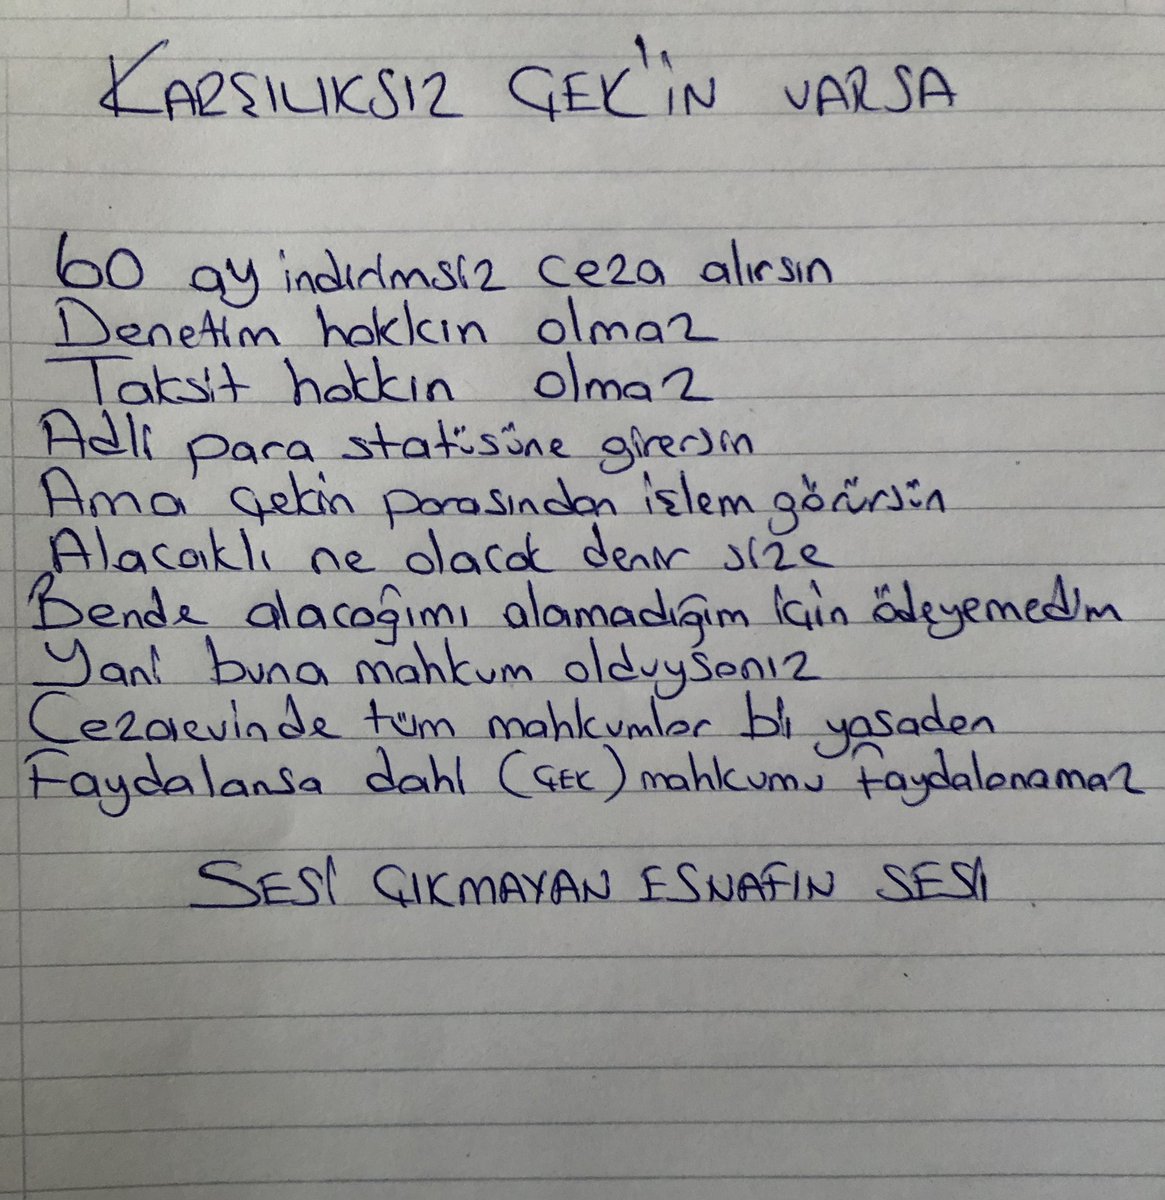 KARŞILIKSIZ ÇEK'İN VARSA
60 ay indirimsiz ceza alırsın
Denetim hakkın olmaz
Taksit hakkın olmaz
Adli para statüsüne girersin
Ama çekin parasından işlem görürsün
Alacaklı ne olacak denir size
Bende alacağımı alamadığım için ödeyemedim
Yani buna mahkum olduysanız
Cezaevinde tüm mahkumlar bi yasaden
Faydalansa dahi (ÇEK) mahkumu faydalanamaz
SESİ ÇIKMAYAN ESNAFIN SESİ